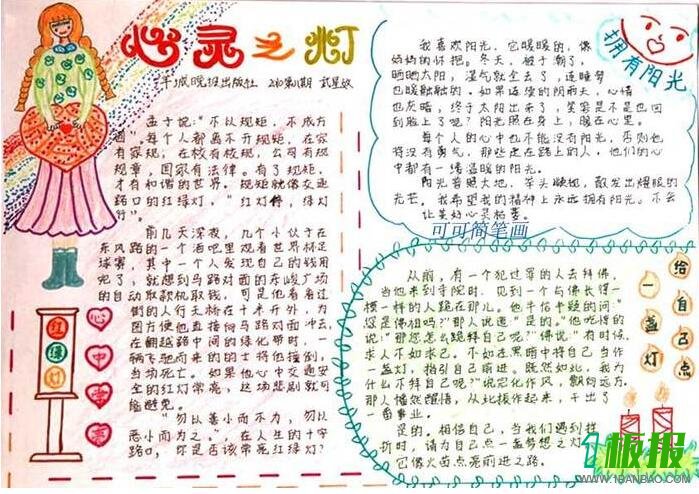 心灵之灯
孟子说:“不以规矩,不成方
圆”,每个人都离不开规矩,在家
有家规,在校有校规,公司有规
规章,国家有法律。有了规矩,
才有和谐的世界。规矩就像交通
路口的红绿灯,“红灯停,绿灯
行”。
前几天深夜,几个小伙子在
东风路的一个酒吧里观看世界杯足
球赛,其中一个人发现自己的钱用
完了,就想到马路对面的东峻广场
的自动取款机取钱,可是他看着过
街的人行天桥在十米开外,为
图方便他直接向马路对面冲去,
在翻越路中间的绿化带时,一
辆飞驰而来的的士将他撞倒,
当场死亡。如果他心中交通安
全的红灯常亮,这场悲剧就可
能避免。
“勿以善小而不为,勿以
恶小而为之”,在人生的十字
路口,你是否该常亮红绿灯?
红
绿
灯
心
中
常
亮
拥有阳光
我喜欢阳光,它暖暖的,像
妈妈的怀抱。冬天,被子潮了,
晒晒太阳,湿气就全去了,连睡梦
也暖融融的。如果连续的阴雨天,心情
也灰暗,终于太阳出来了,笑容是不是也回
到脸上了呢?阳光照在身上,暖在心里。
每个人的心中也不能没有阳光,否则他
将没有勇气,那些走在路上的人,他们的心
中都有一缕温暖的阳光。
阳光普照大地,举头
散发出耀眼的
光芒。我希望我的精神上永远拥有阳光。不会
让美好心灵枯萎。
可可简笔画
给
自
己
点
一
盏
灯
从前,有一个犯过罪的人去拜佛,
当他来到寺院时,见到一个与佛长得一
模一样的人跪在那儿。他半信半疑的问:“
您是佛祖吗?”那人说道:“是的。”他吃惊的
说:“那您怎么跪拜自己呢?”佛说:“有时候,
求人不如求己。不如在黑暗中将自己当作
一盏灯,指引自己前进。既然如此,我为
什么不拜自己呢?”说完化作风,飘向远方。
那人幡然醒悟,从此振作起来,干出了
一番事业。
是的,相信自己,当我们遇到挫
折时,请为自己点一盏梦想之灯,
它像火苗点亮前进之路。
1板报
WWW.1BANBAO.COM